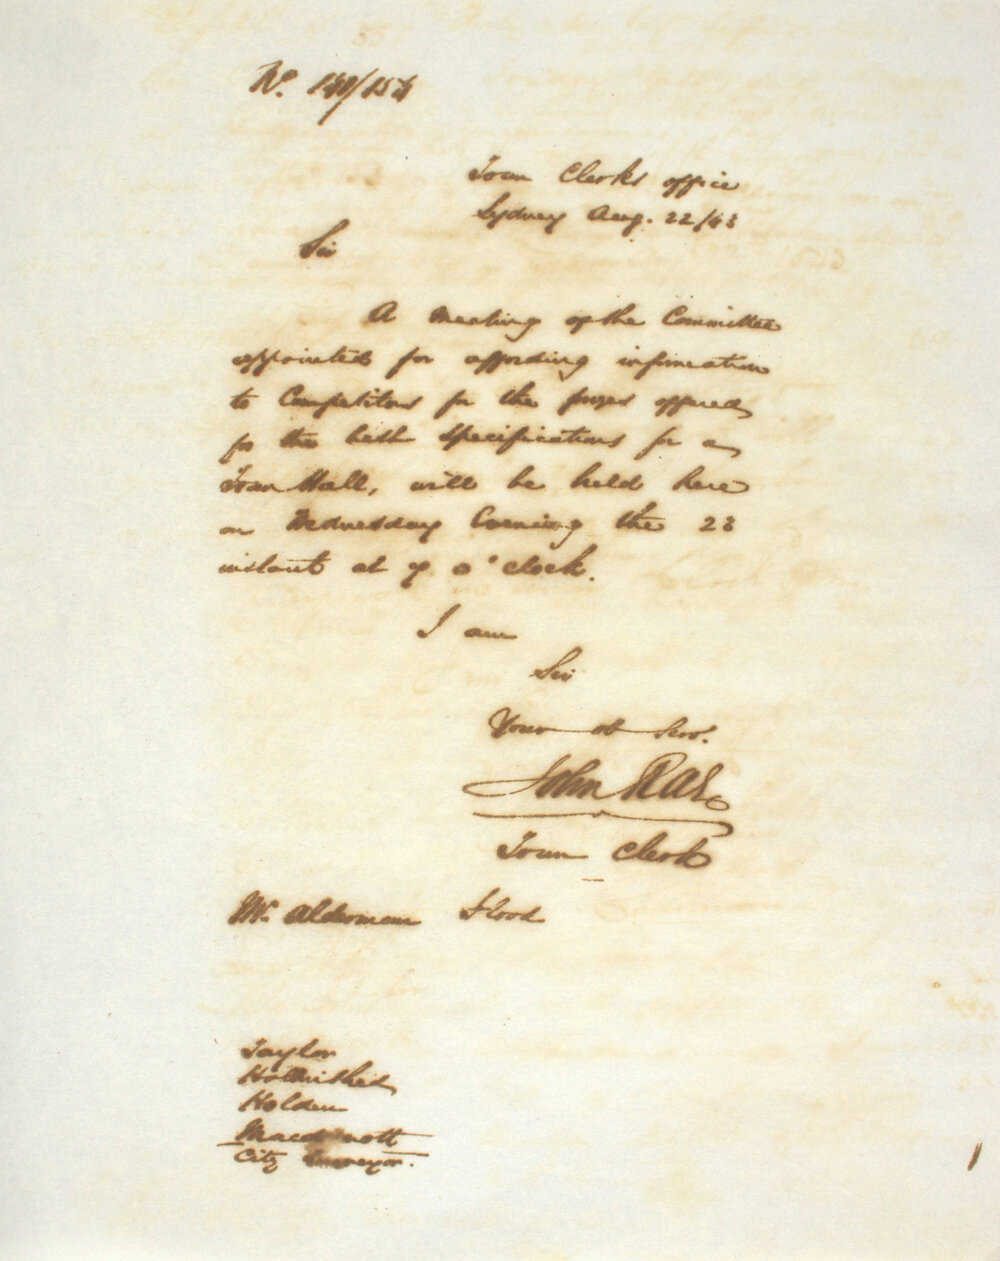 No. 140/154
Town Clerks office
Sydney Aug. 22/43
Sir
A Meeting of the Committee
appointed for affording information
to Competitors for the prizes offered
for the best Specifications for a
Town Hall, will be held here
on Wednesday Evening the 23
instant at 7 o'clock.
I am
Sir
Your ob Serv.
John RAE
Town Clerk
Mr Alderman Flood
Taylor
Hollinshed
Holden
Macdermott
City Surveyor.